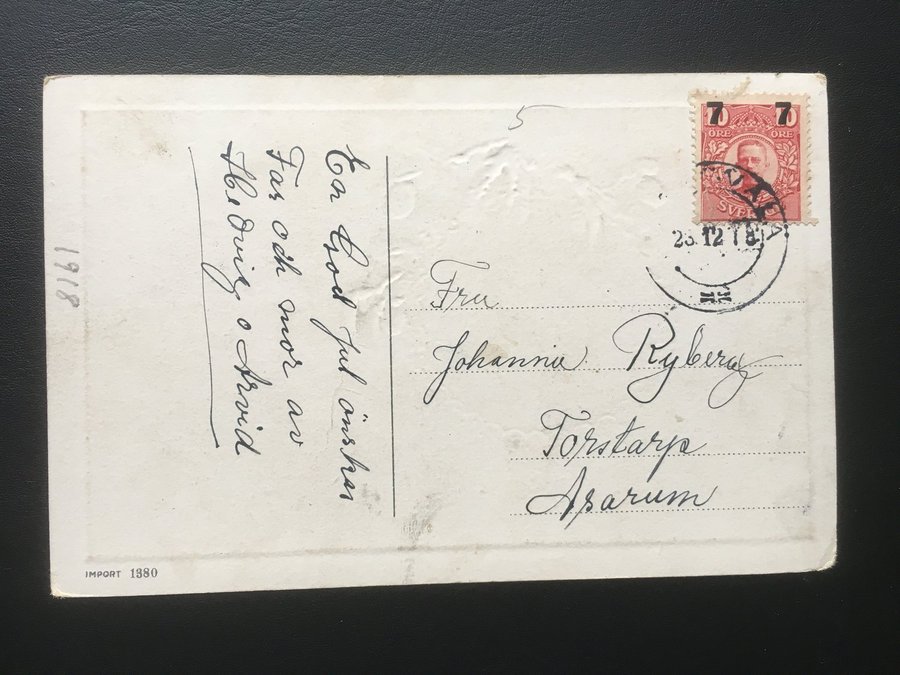 En God Jul önskas
Far och mor av
Hedvig o Arvid
1918
5
7 7
10 10
ÖRE ÖRE
SVERIGE
23.12 18
Fru
Johanna Ryberg
Torstarp
Asarum
IMPORT 1380